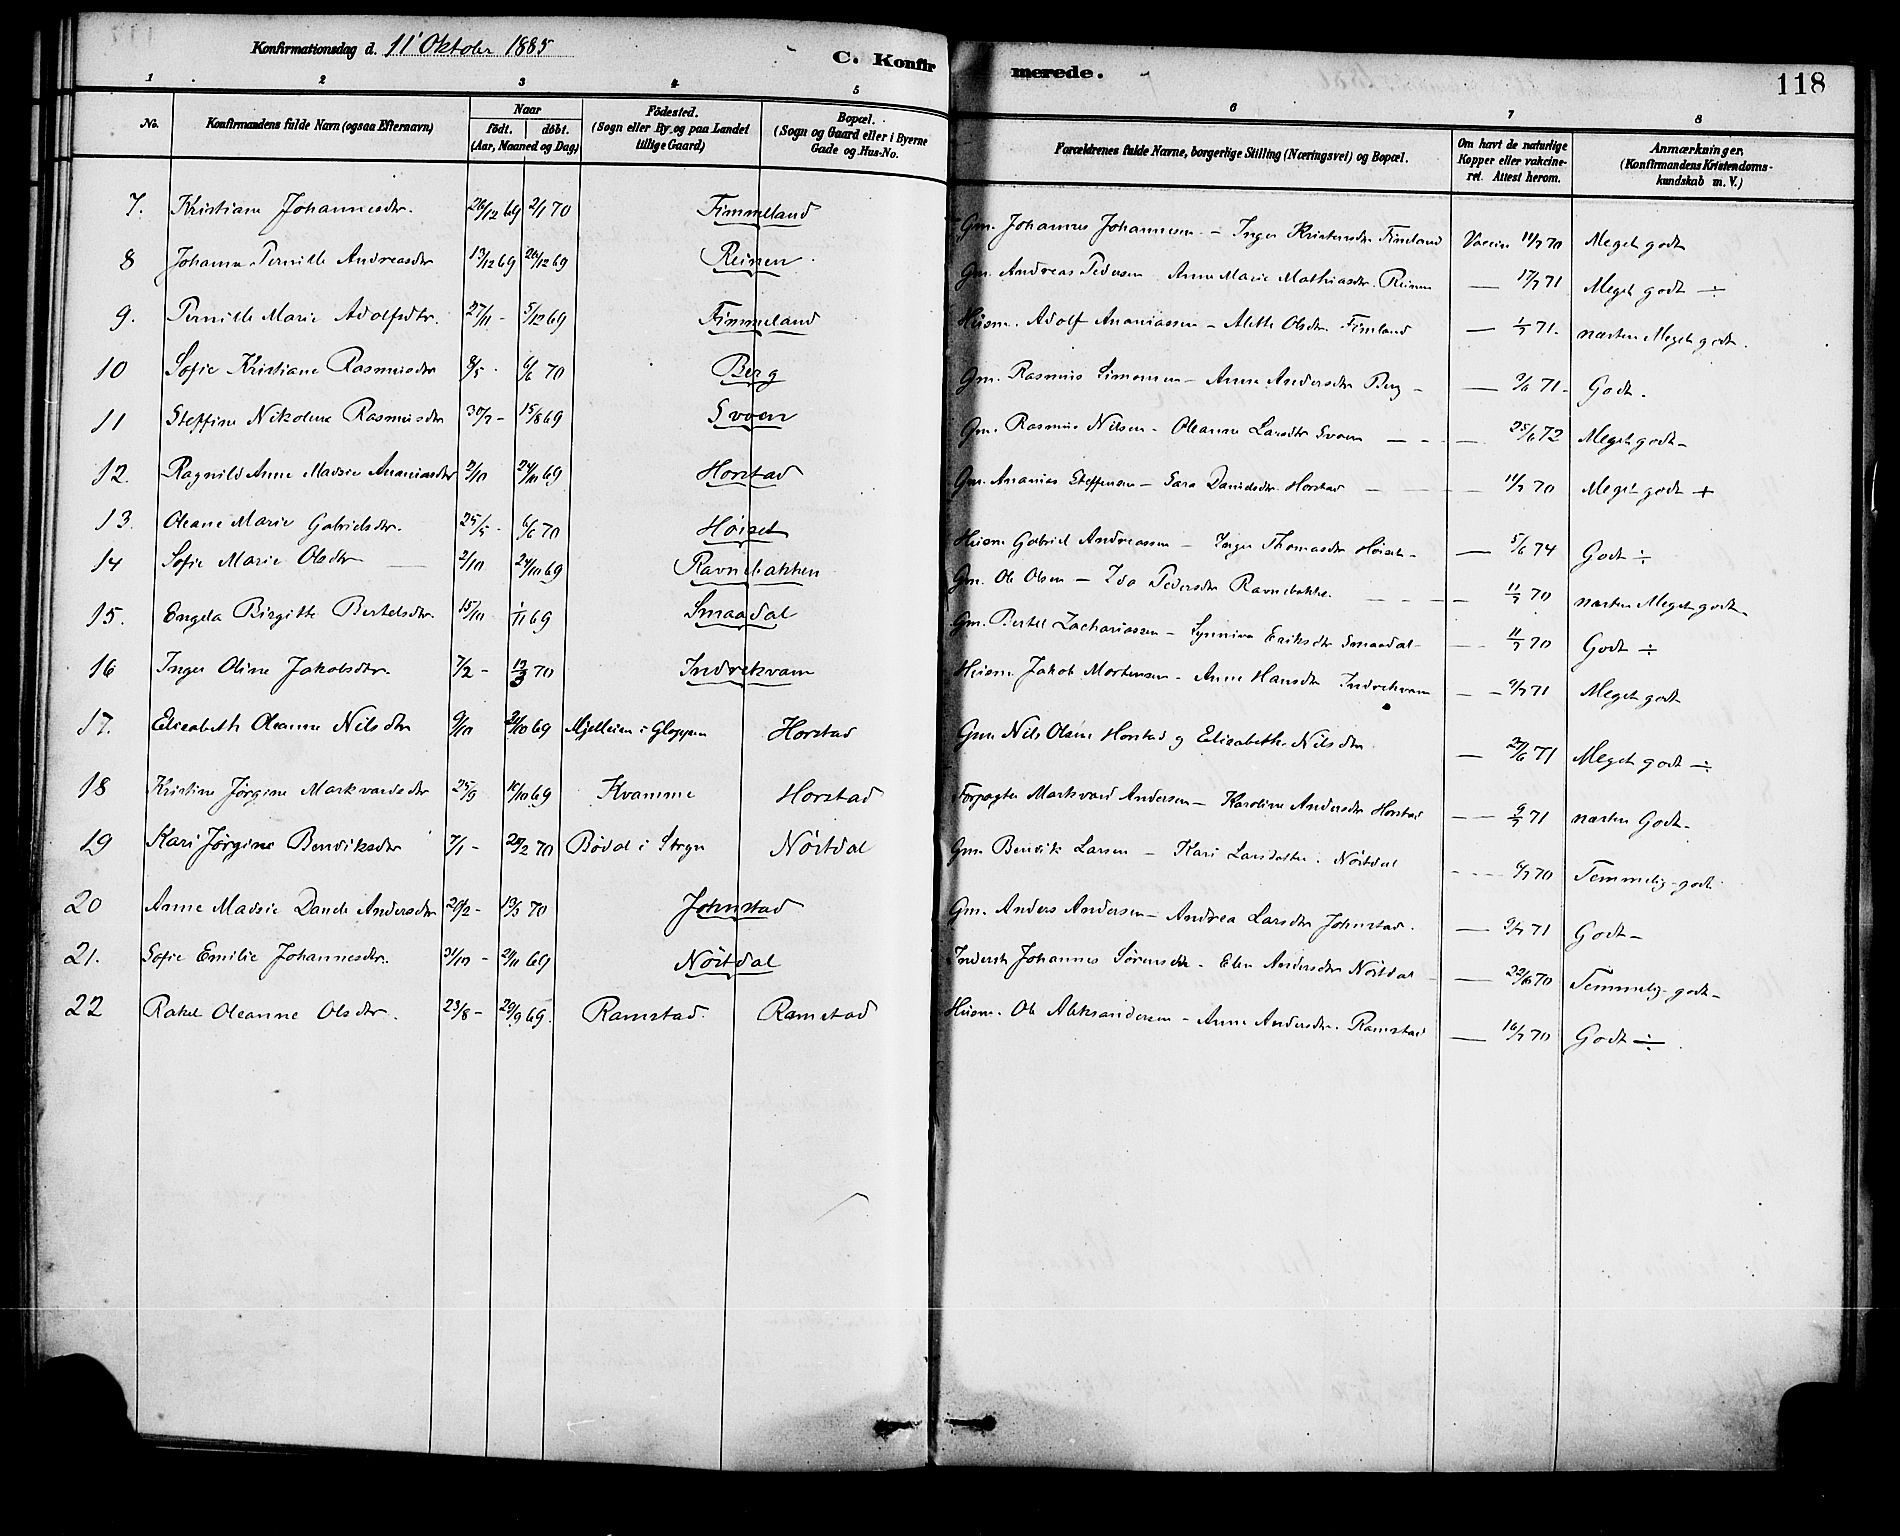 Konfirmationsdag d. 11' Oktober 1885
C. Konfirmerede.
118
1 2 3 4 5 6 7 8
No.
Konfirmandens fulde Navn (ogsaa Efternavn)
Naar
født. døbt.
(Aar, Maaned og Dag)
Fødested.
(Sogn eller By og paa Landet
tillige Gaard)
Bopæl.
(Sogn og Gaard eller i Byerne
Gade og Hus-No.
Forældrenes fulde Navne, borgerlige Stilling (Næringsvei) og Bopæl.
Om havt de naturlige
Kopper eller vakcine-
ret. Attest herom.
Anmærkninger,
(Konfirmandens Kristendoms-
kundskab m. V.)
7. Kristiane Johannesdtr. 26/12 69 2/1 70 Fimmeland Gm. Johannes Johannesen - Inger Kristensdtr Fimland Vaccin 11/7 70 Meget godt
8 Johanne Pernille Andreasdtr 13/12 69 26/12 69 Reinen Gm. Andreas Pedersen Anne Marie Mathiasdtr. Reinen — 17/7 71 Meget godt ÷
9. Pernille Marie Adolfsdtr. 27/11 - 5/12 69 Fimmeland Husm. Adolf Ananiassen - Alette Olsdtr. Fimland — 1/7 71. næsten Meget godt.
10 Sofie Kristiane Rasmusdtr 8/5 - 6/6 70 Berg Gm. Rasmus Simonsen - Anne Andersdtr Berg - — 71 - Godt.
11 Steffine Nikoline Rasmusdtr 30/7 - 15/8 69 Svoen Gm. Rasmus Nilsen - Oleanne Larsdtr Svoen — 25/6 72 Meget godt -
12. Ragnild Anne Madsie Ananiasdtr 2/10 24/10 69 Horstad Gm. Ananias Steffensen - Sara Danielsdtr. Horstad — 11/7 70 Meget godt +
13. Oleane Marie Gabrielsdtr. 25/5 - 6/6 70 Høiset Husm Gabriel Andreassen - Inger Thomasdtr Høiset - — 5/6 74 Godt ÷
14 Sofie Marie Olsdtr 2/10 24/10 69 Ravnebakken Gm. Ole Olsen - Ida Pedersdtr Ravnebakke. — 11/7 70 næsten Meget godt.
15. Engela Birgitte Bertelsdtr. 15/10 1/11 69 Smaadal Gm. Bertel Zachariassen - Synniva Eriksdtr Smaadal - — 11/7 70 Godt ÷
16 Inger Oline Jakobsdtr. 7/2 - 13/3 70 Indrekvam Husm. Jakob Mortensen - Anne Hansdtr Indrekvam — 71 Meget godt
17. Elisabeth Oleanne Nilsdtr 9/10 24/10 69 Mjelleim i Gloppen Horstad Gm. Nils Olsen Horstad og Elisabeth Nilsdtr. — 27/6 71 Meget godt ÷
18 Kristine Jørgine Markvardsdtr 25/9 10/10 69 Kvamme Horstad Forpagter Markvard Andersen - Karoline Andersdtr Horstad — 9/7 71 næsten Godt -
19 Kari Jørgine Bendiksdtr 7/1 - 20/2 70 Bødal i Stryn Nøstdal Gm. Bendik Larsen - Kari Larsdatter. Nøstdal — 6/7 70 Temmelig godt
20 Anne Madsie Danele Andersdtr 20/2 - 13/3 70 Johnstad Gm. Anders Andersen - Andrea Larsdtr Johnstad. — 9/7 71 Godt -
21. Sofie Emilie Johannesdtr. 31/10 - 21/11 69 Nøstdal Inderst Johannes Sørensen - Elen Andersdtr Nøstdal — 22/6 70 Temmelig godt -
22 Rakel Oleanne Olsdtr. 23/8 - 20/9 69. Ramstad. Ramstad Husm. Ole Aleksandersen - Anne Andersdtr. Ramstad — 16/7 70 Godt ÷